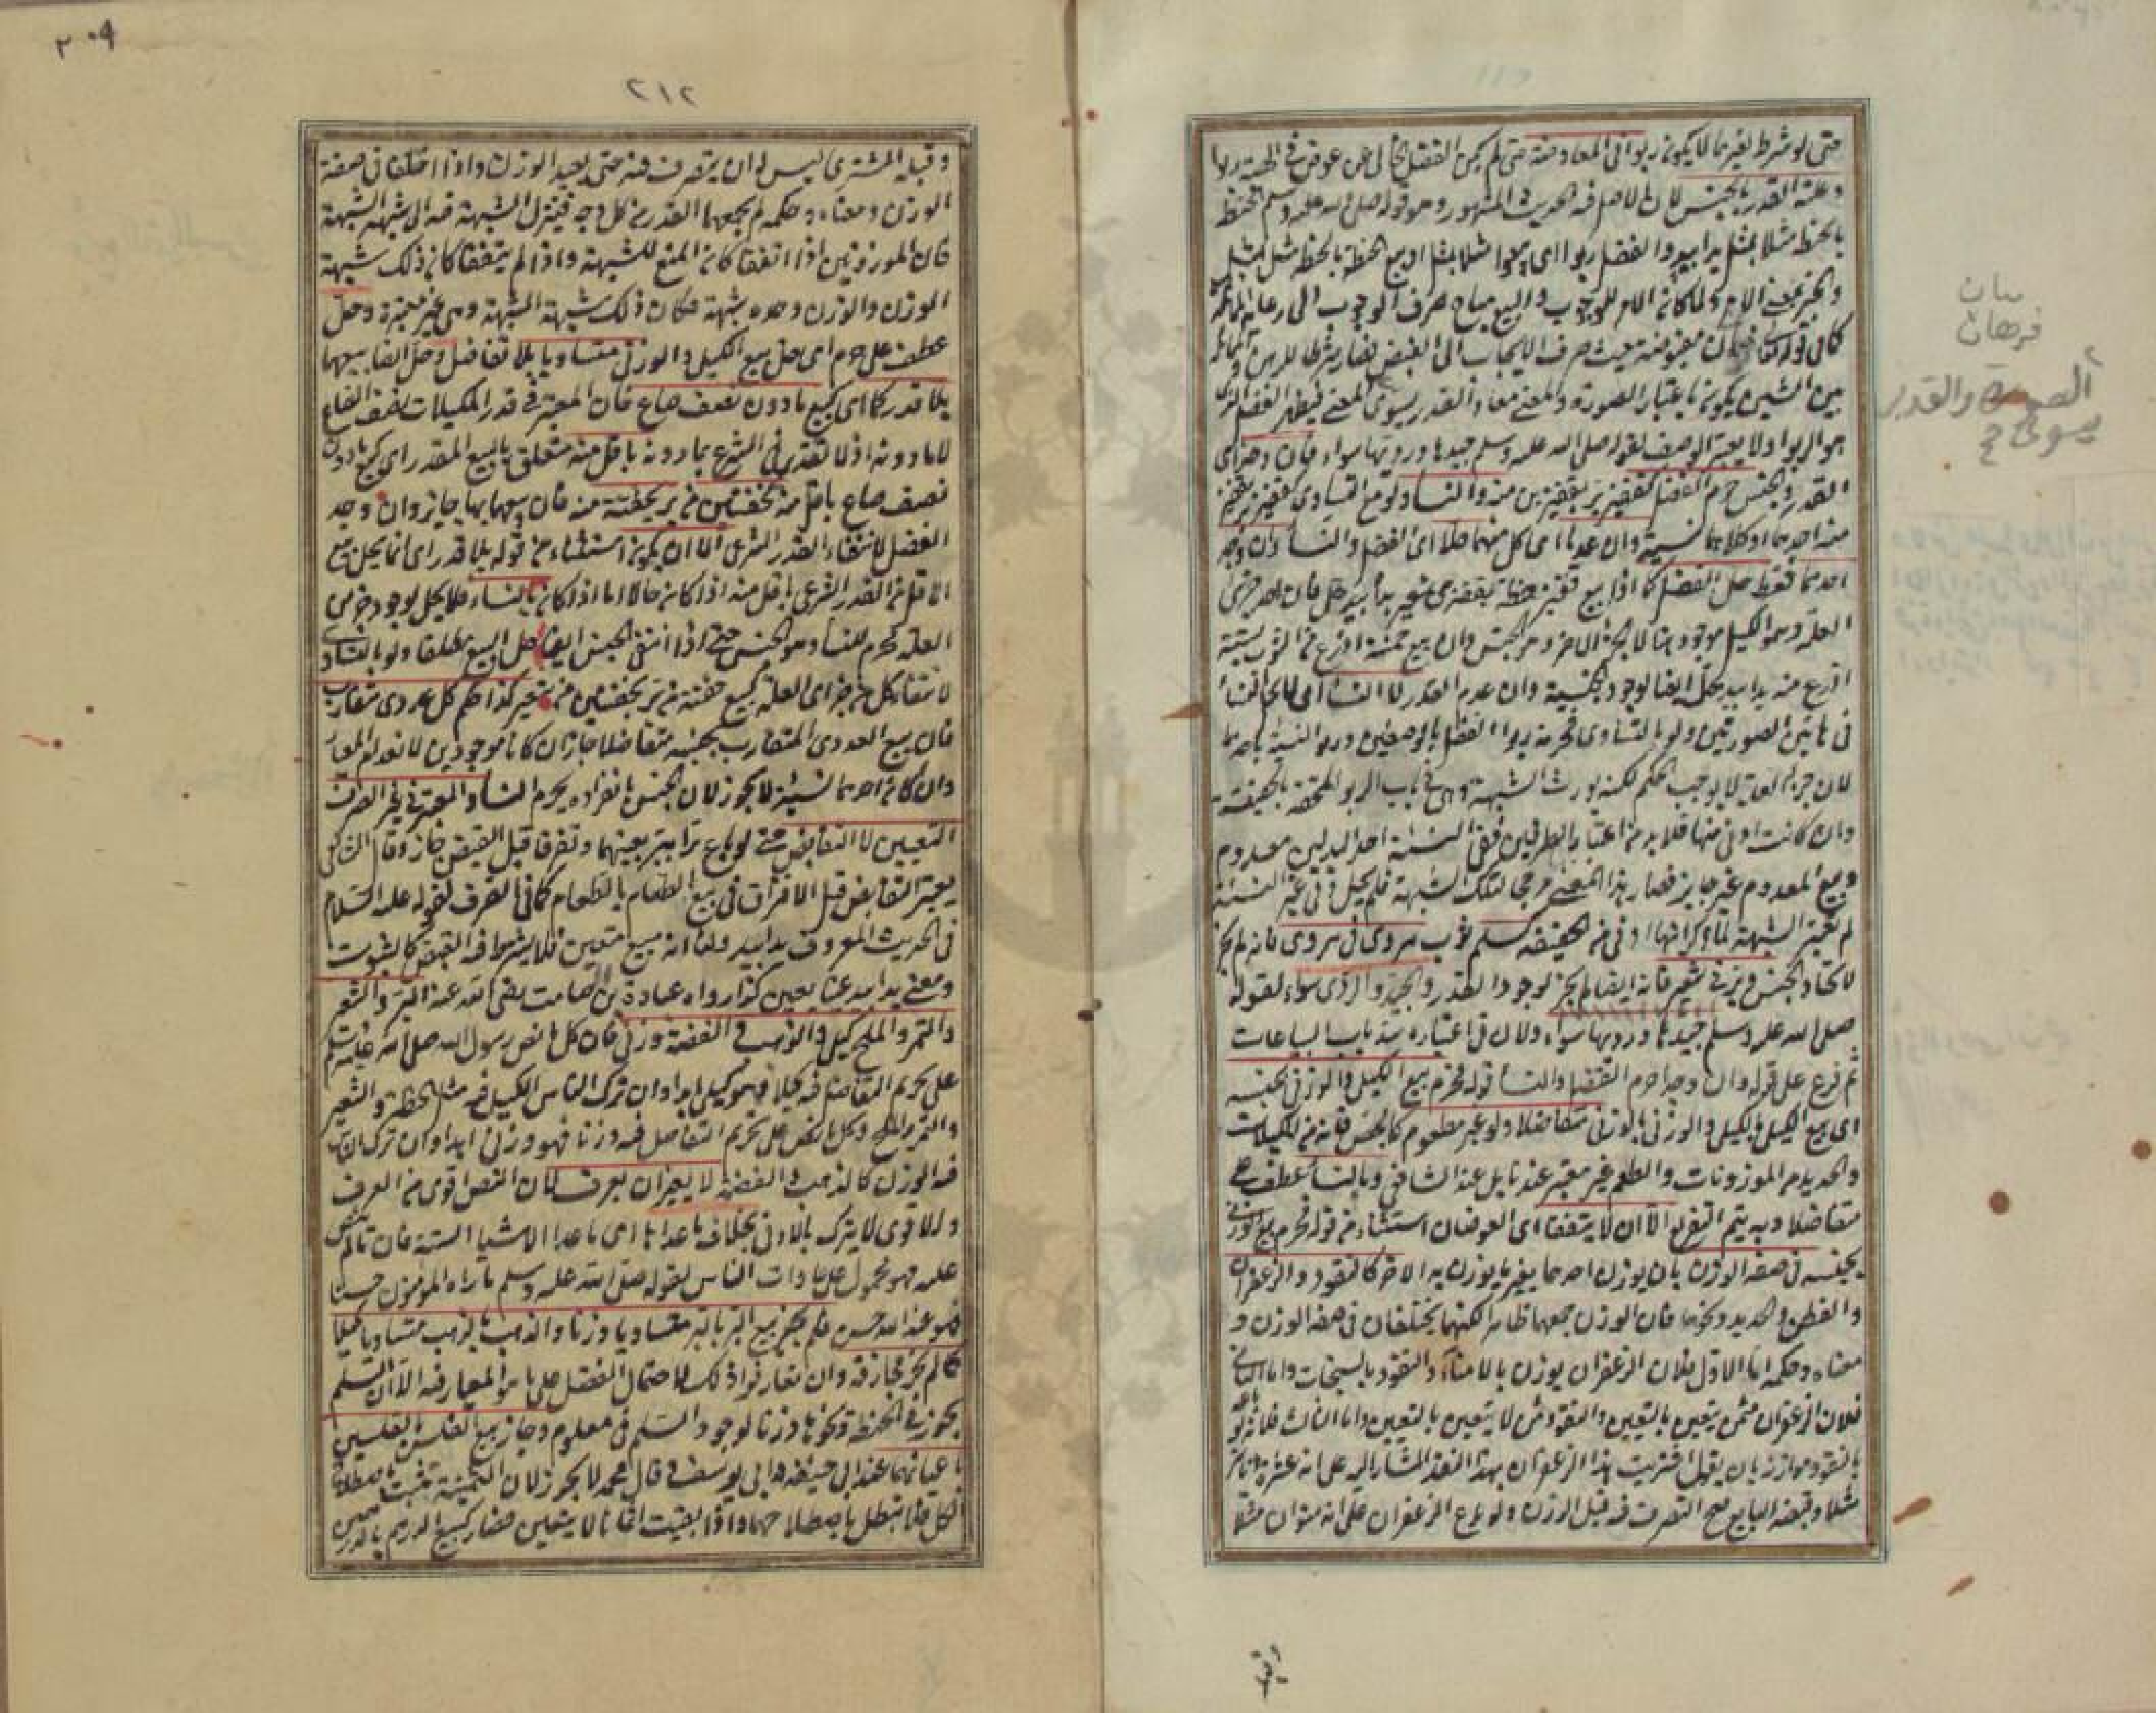 حتى لو شرط لغيرهما لا يكون ربوا فى المعاوضة حتى لم يكن الفضل الخالى عن عوض فى الهبة ربوا
وعلته القدر بالجنس لان الاصل فيه الحديث المشهور وهو قوله صلى الله عليه وسلم الحنطة
بالحنطة مثلا بمثل يدا بيد والفضل ربوا اى بيعوا مثلا بمثل او بيع الحنطة بالحنطة مثل بمثل
والخبر بمعنى الامر ولما كان الامر للوجوب والبيع مباح صرف الوجوب الى رعاية المماثلة
كما فى قوله تعالى فرهان مقبوضة حيث صرف الايجاب الى القبض فصار شرطا للرهن والمماثلة
بين الشيئين يكون باعتبار الصورة والمعنى معا والقدر يسوى المعنى فيظهر الفضل الذى
هو الربوا ولا يعتبر الوصف لقوله صلى الله عليه وسلم جيدها ورديها سواء فان وجد اى
القدر والجنس حرم الفضل كقفيز بر بقفيزين منه والنسا ولو مع التساوى كقفيز بر بقفيز
منه احدهما او كلاهما نسيئة وان عدما اى كل منهما حلا اى الفضل والنسأ وان وجد
احدهما فقط حل الفضل كما اذا بيع قفيز حنطة بقفيزى شعير يدا بيد حل فان احد جزئى
العلة وهو الكيل موجود هنا لا الجزء الاخر وهو الجنس وان بيع خمسة اذرع من الثوب بستة
اذرع منه يدا بيد يحل ايضا لوجود الجنسية وان عدم القدر لا النسأ اى لا يحل النسأ
فى هاتين الصورتين ولو بالتساوى فحرمة ربوا الفضل بالوصفين وربوا النسيئة باحدهما
لان جزء العلة لا يوجب الحكم لكنه يورث الشبهة وهى فى باب الربوا ملحقة بالحقيقة
وان كانت ادنى منها فلا بد من اعتبار الطرفين ففى النسيئة احد البدلين معدوم
وبيع المعدوم غير جايز فصار هذا المعنى مرجحا لتلك الشبهة فلم يحل وفى غير النسيئة
لم تعتبر الشبهة لما ذكر انها ادنى من الحقيقة كسلم ثوب هروى فى هروى فانه لم يجز
لاتحاد الجنس وبر فى شعير فانه ايضا لم يجز لوجود القدر والجيد والردى سواء لقوله
صلى الله عليه وسلم جيدها ورديها سواء ولان فى اعتباره سد باب البياعات
ثم فرع على قوله وان وجدا حرم الفضل والنسأ قوله فحرم بيع الكيلى والوزنى بجنسه
اى بيع الكيلى بالكيلى والوزنى بالوزنى متفاضلا ولو غير مطعوم كالجص فانه من المكيلات
والحديد من الموزونات والطعم غير معتبر عندنا بل عند الشافعى وبالنسأ عطف على
متفاضلا وبه يتم التفريع الا ان لا يتفقا اى العوضان استثناء من قوله فحرم بيع الوزنى
بجنسه فى صفة الوزن بان يوزن احدهما بغير ما يوزن به الاخر كالنقود والزعفران
والقطن والحديد ونحوها فان الوزن جمعها ظاهرا لكنهما يختلفان فى صفة الوزن و
معناه وحكمه اما الاول فلان الزعفران يوزن بالامناء والنقود بالسنجات واما الثانى
فلان الزعفران مثمن يتعين بالتعيين والنقود ثمن لا يتعين بالتعيين واما الثالث فلانه لو باعه
بالنقود موازنة بان يقول اشتريت هذا الزعفران بهذا النقد المشار اليه على انه عشرة دنانير
مثلا وقبضه البايع صح التصرف فيه قبل الوزن ولو باع الزعفران على انه منوان مثلا
بيان
فرهان
الصورة والقدر
يسوى
٢٠٩
٢١٢
وقبله المشترى ليس له ان يتصرف فيه حتى يعيد الوزن واذا اختلفا فى صفة
الوزن ومعناه وحكمه لم يجمعهما القدر من كل وجه فيتنزل الشبهة فيه الى شبهة الشبهة
فان الموزونين اذا اتفقا كان المنع للشبهة واذا لم يتفقا كان ذلك شبهة
الوزن والوزن وحده شبهة فكان ذلك شبهة الشبهة وهى غير معتبرة وحل
عطف على حرم اى حل بيع الكيلى والوزنى متساويا بلا تفاضل وحل ايضا بيعهما
بلا قدر كما اى كبيع ما دون نصف صاع فان المعتبر فى قدر المكيلات نصف الصاع
لا ما دونه اذ لا تقدير فى الشرع بما دونه باقل منه متعلق بالبيع المقدر اى كبيع ما دون
نصف صاع باقل منه كحفنتين من بر بحفنة منه فان بيعها بها جايز وان وجد
الفضل لانتفاء القدر الشرعى الا ان يكون استثناء من قوله بلا قدر اى انما يحل بيع
الاقل من القدر الشرعى باقل منه اذا كان حالا اما اذا كان بالنساء فلا يحل لوجود جزء من
العلة محرم للنسا وهو الجنس حتى اذا انتفى الجنس ايضا حل البيع مطلقا ولو بالنسا
لانتفاء كل من جزئى العلة كبيع حفنة من بر بحفنتين من شعير كذا حكم كل عددى متقارب
فان بيع العددى المتقارب بجنسه متفاضلا جاز ان كانا موجودين لانعدام المعيار
وان كان احدهما نسيئة لا يجوز لان الجنس بانفراده يحرم النسا والمعتبر فى غير الصرف
التعيين لا التقابض حتى لو باع برا ببر بعينهما وتفرقا قبل القبض جاز وقال الشافعى
يعتبر التقابض قبل الافتراق فى بيع الطعام بالطعام كما فى الصرف لقوله عليه السلام
فى الحديث المعروف يدا بيد ولنا انه مبيع متعين فلا يشترط فيه القبض كالثوب
ومعنى يدا بيد عينا بعين كذا رواه عبادة بن الصامت رضى الله عنه البر والشعير
والتمر والملح كيلى والذهب والفضة وزنى فان كل ما نص رسول الله صلى الله عليه وسلم
على تحريم التفاضل فيه كيلا فهو كيلى ابدا وان ترك الناس الكيل فيه مثل الحنطة والشعير
والتمر والملح وكل ما نص على تحريم التفاضل فيه وزنا فهو وزنى ابدا وان ترك الناس
فيه الوزن كالذهب والفضة لا يغيران بعرف لان النص اقوى من العرف
والاقوى لا يترك بالادنى بخلاف ما عداها اى ما عدا الاشياء الستة فان ما لم ينص
عليه فهو محمول على عادات الناس لقوله صلى الله عليه وسلم ما راه المؤمنون حسنا
فهو عند الله حسن فلم يجز بيع البر بالبر متساويا وزنا والذهب بالذهب متساويا كيلا
كما لم يجز مجازفة وان تعارفوا ذلك لاحتمال الفضل على ما هو المعيار فيه الا ان السلم
يجوز فى الحنطة ونحوها وزنا لوجود السلم فى معلوم وجاز بيع الفلس بالفلسين
باعيانهما عند ابى حنيفة وابى يوسف وقال محمد لا يجوز لان الثمنية تثبت باصطلاح
الكل فلا تبطل باصطلاحهما واذا بقيت اثمانا لا يتعين فصار كبيع الدرهم بالدرهمين